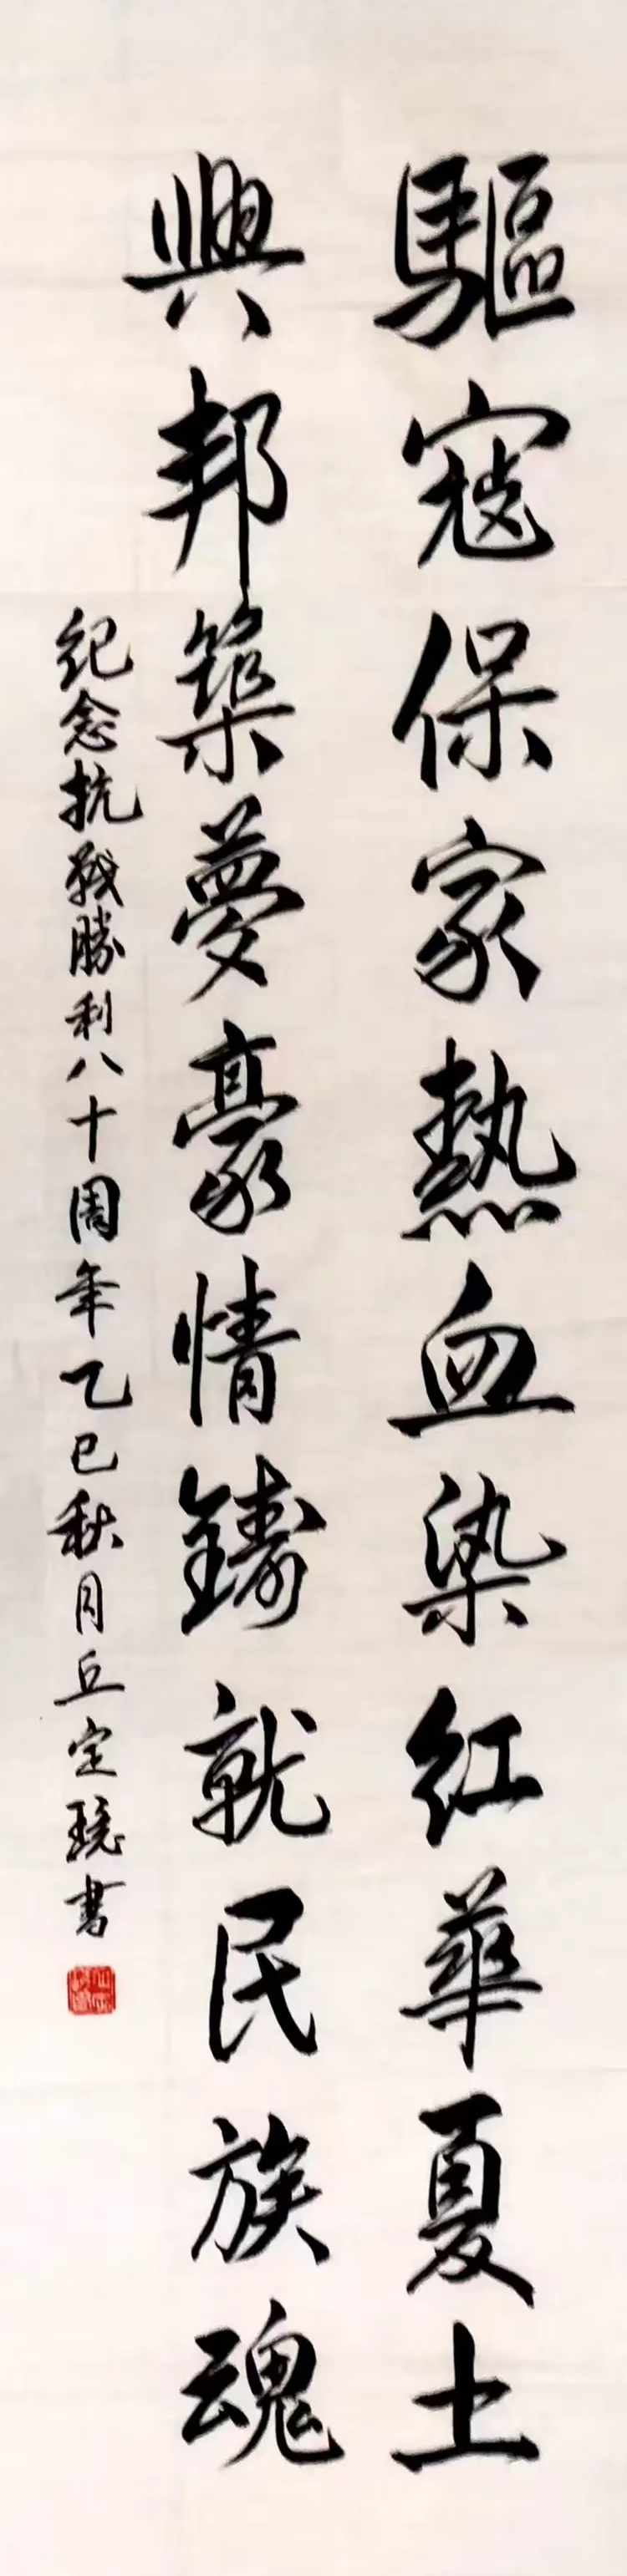 驅寇保家熱血染紅華夏土
興邦築夢豪情鑄就民族魂
纪念抗戰勝利八十周年乙巳秋月丘定琼書